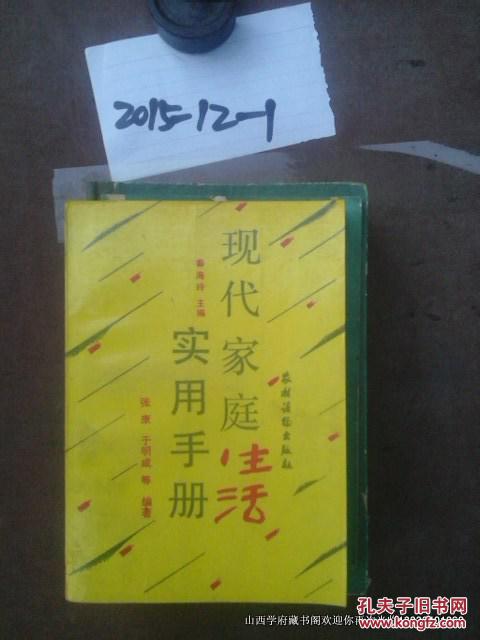 2015-12-1
现代家庭生活
实用手册
秦海玲 主编
张康 于明威 等 编著
农村读物出版社
孔夫子旧书网
www.kongfz.com
山西学府藏书阁欢迎你